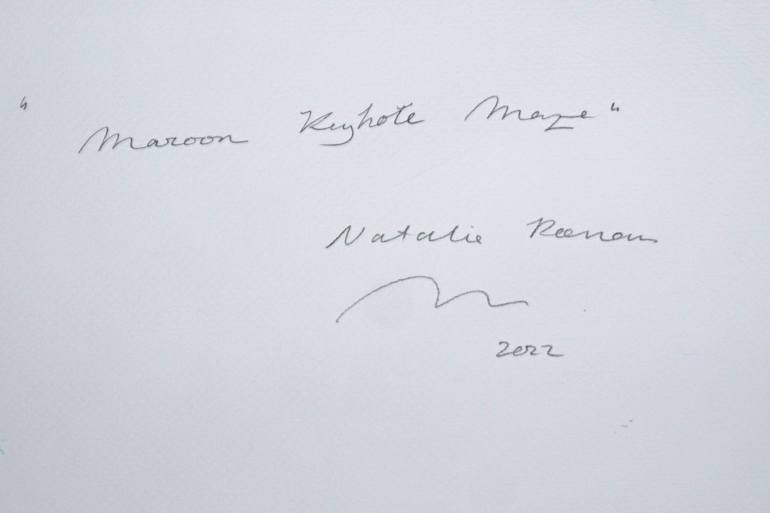 "Maroon Keyhole Maze"
Natalie
2022